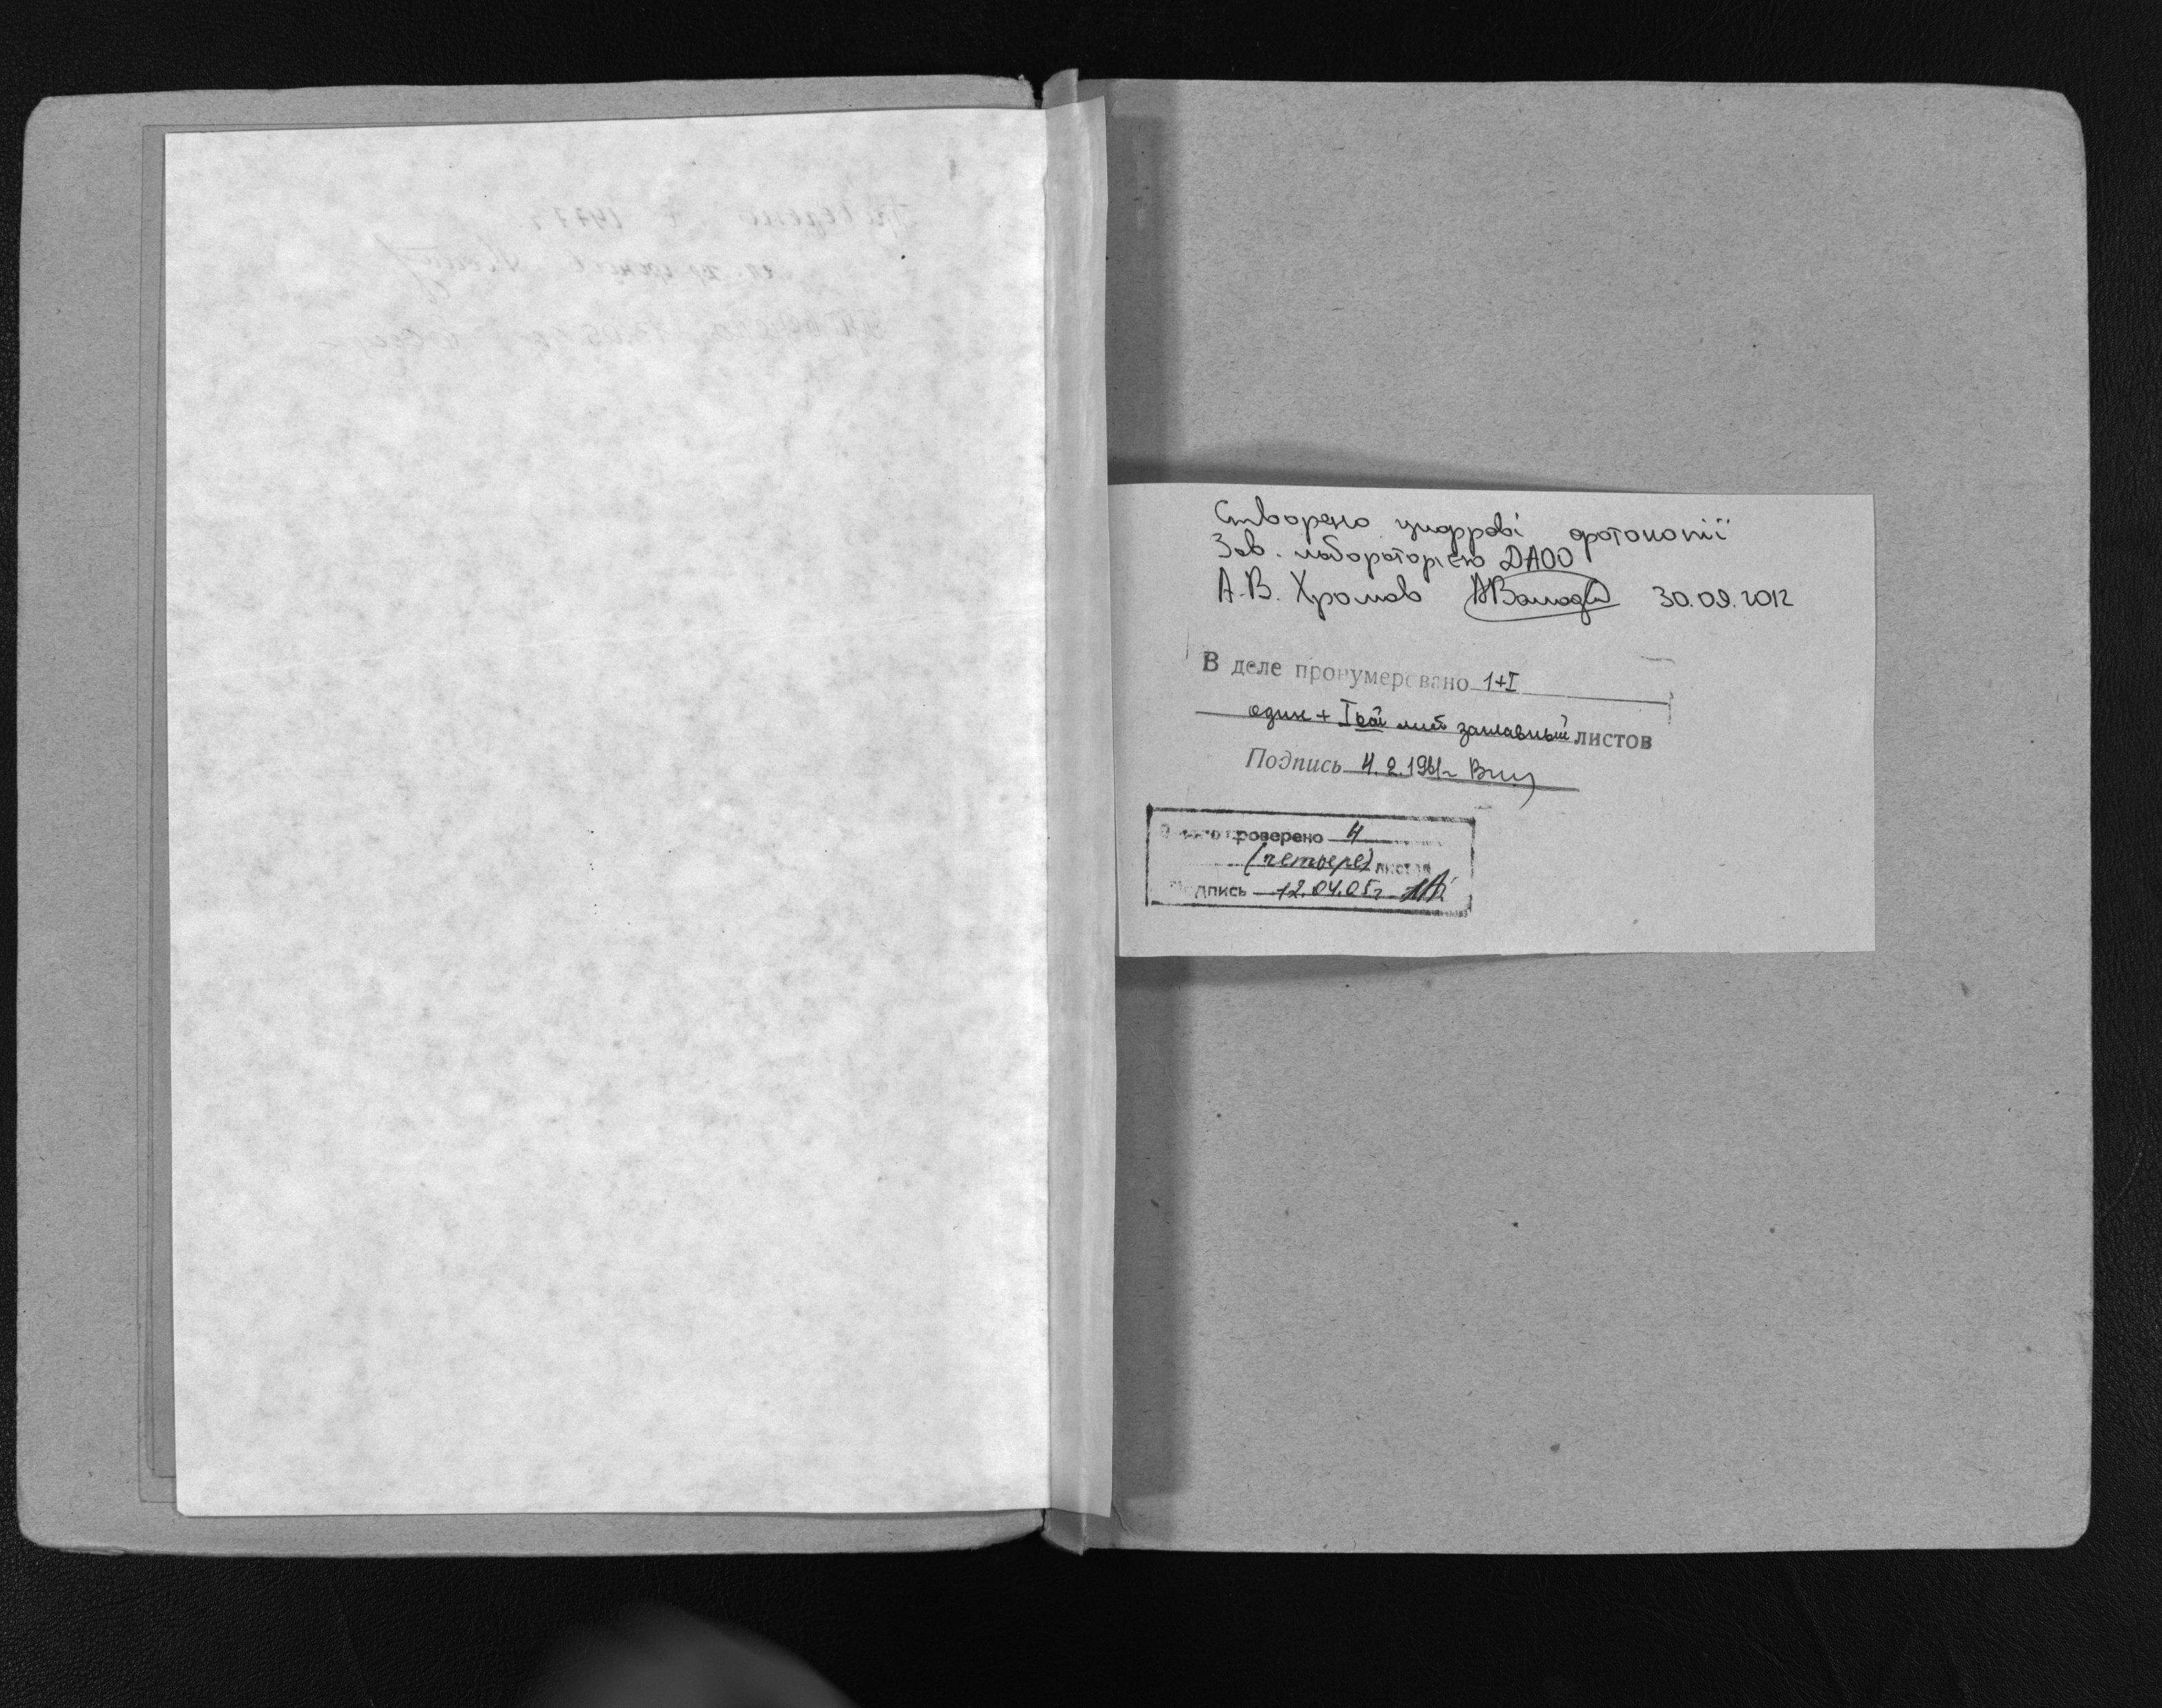 Створено цифрові фотокопії
Зав. лабораторією ДАОО
А.В. Хромов 30.09.2012
В деле пронумеровано 1+I
один + I ый лист заглавный листов
Подпись 4.2.1961г
проверено 4
(четыре) листов
Подпись 12.04.05г